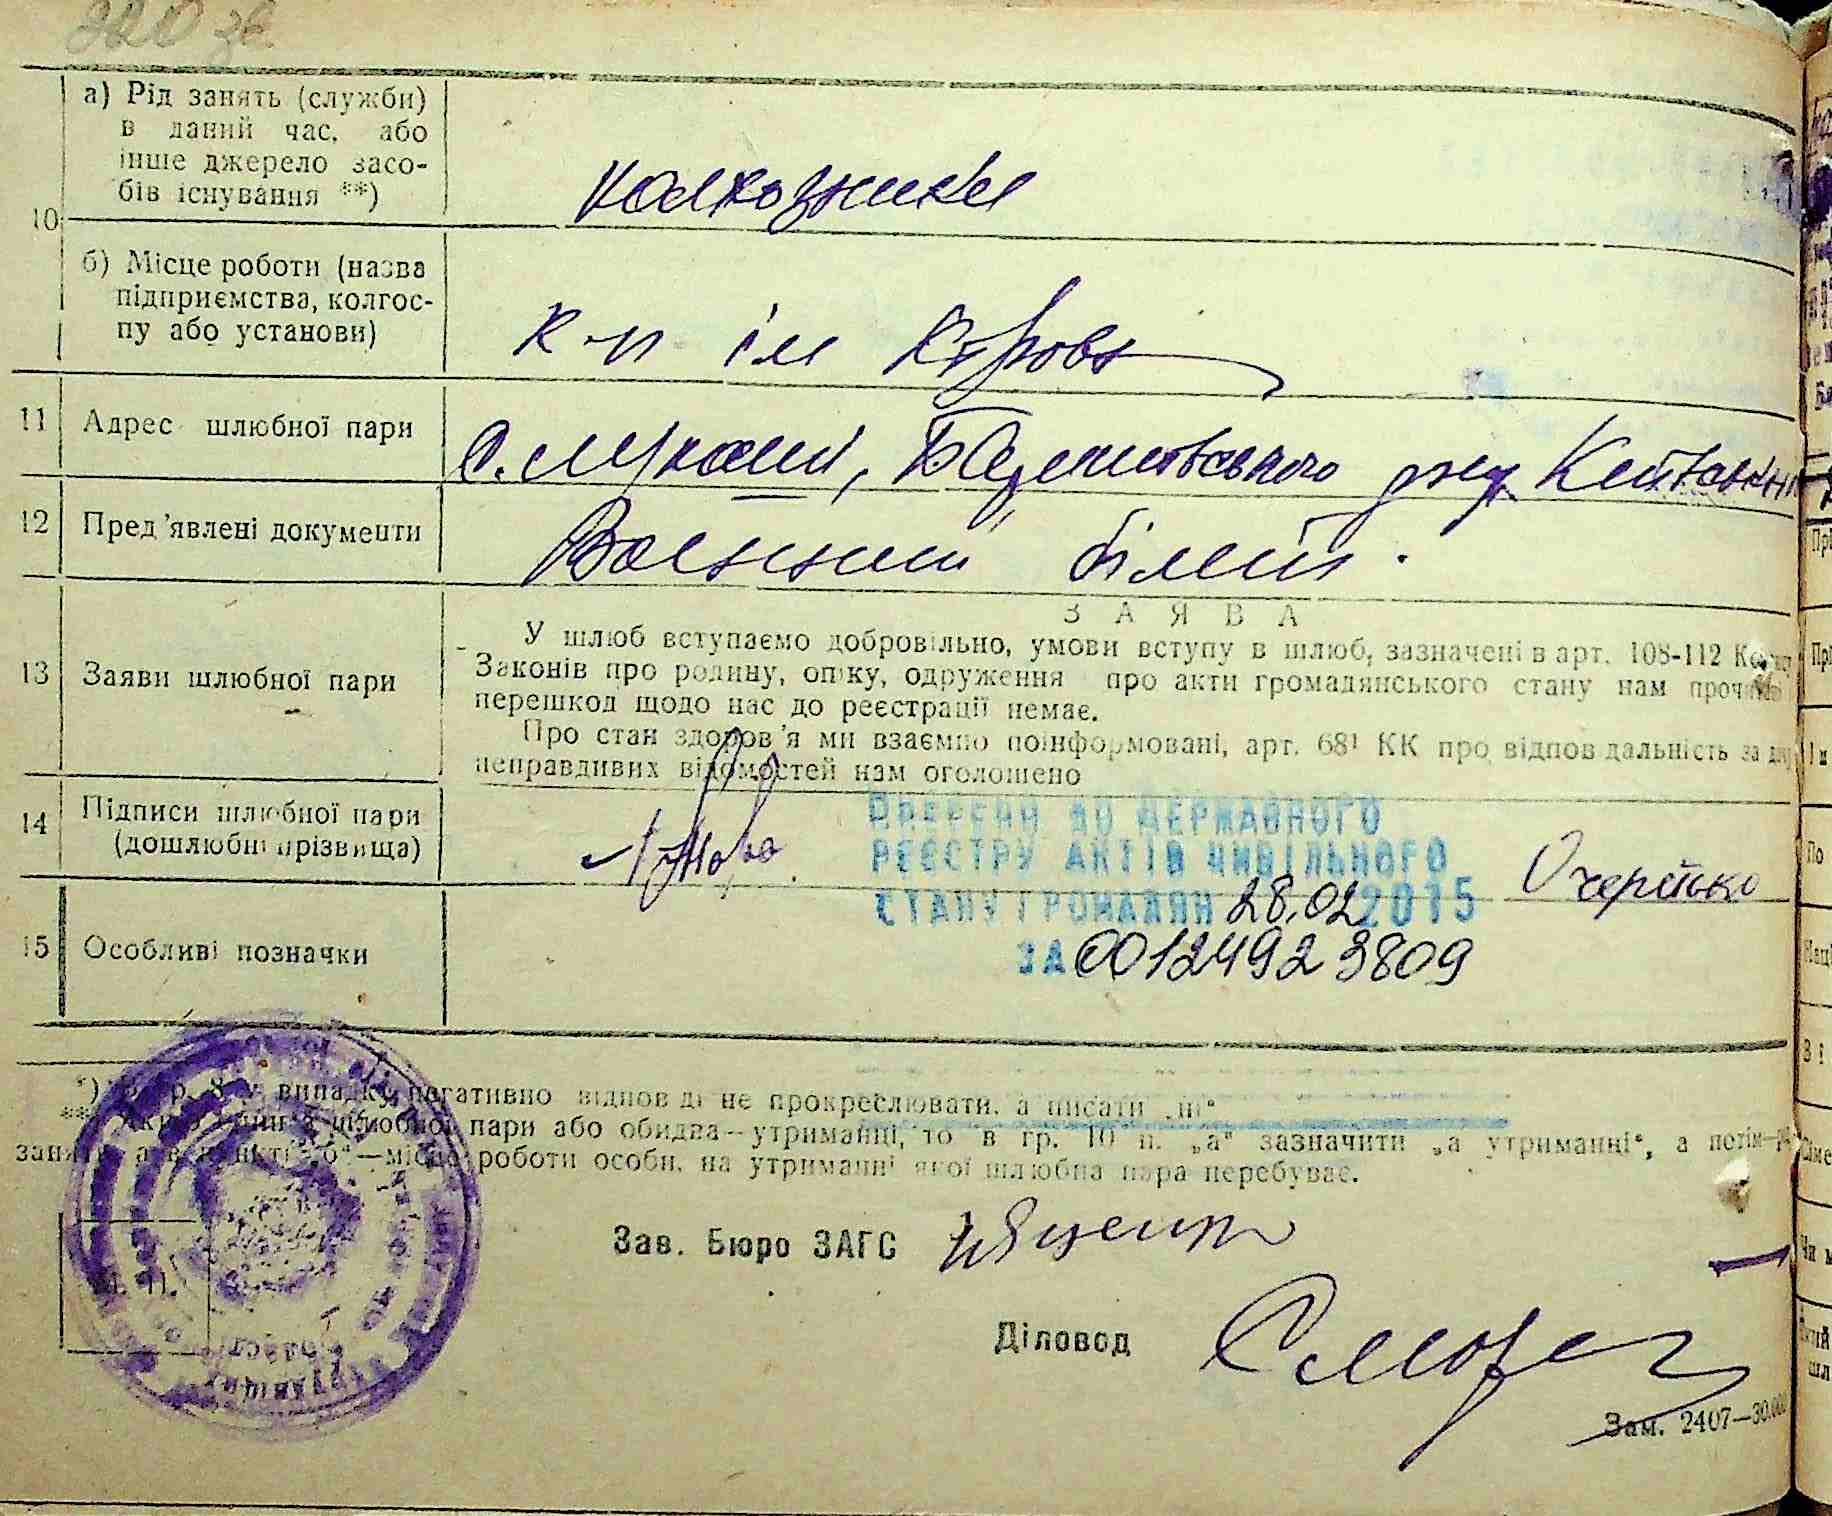 10
а) Рід занять (служби)
в даний час, або
інше джерело засо-
бів існування **)
колхозники
б) Місце роботи (назва
підприємства, колгос-
пу або установи)
к-п ім Кірова
11 Адрес шлюбної пари
с. Мокіївський ру Київської
12 Пред'явлені документи
Воєнний білет.
13 Заяви шлюбної пари
ЗАЯВА
У шлюб вступаємо добровільно, умови вступу в шлюб, зазначені в арт. 108-112
Законів про родину, опіку, одруження про акти громадянського стану нам
перешкод щодо нас до реєстрації немає.
Про стан здоров'я ми взаємно поінформовані, арт. 68¹ КК про відповідальність за
неправдивих відомостей нам оголошено
14 Підписи шлюбної пари
(дошлюбні прізвища)
ВНЕСЕНО ДО ДЕРЖАВНОГО
РЕЄСТРУ АКТІВ ЦИВІЛЬНОГО
СТАНУ ГРОМАДЯН 28.02 2015
ЗА 00124923809
15 Особливі позначки
*) В гр. 8 у випадку негативно відповіді не прокреслювати, а писати „ні“
** Якщо один з шлюбної пари або обидва—утриманці, то в гр. 10 п. „а“ зазначити „а утриманні“, а потім—рід
занять, а в пункті „б“—місце роботи особи, на утриманні якої шлюбна пара перебуває.
М. П.
Зав. Бюро ЗАГС
Діловод
Зам. 2407—30.000